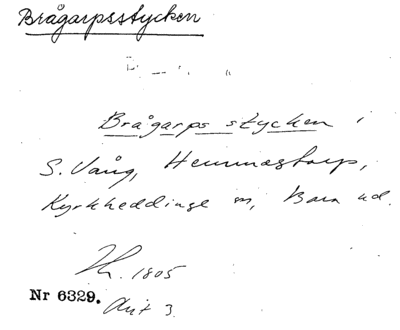 Brågarpsstycken
Brågarps stycken i
S. Vång, Hemmestorp,
Kyrkheddinge sn, Bara hd.
1805
Nr 6329. Akt 3